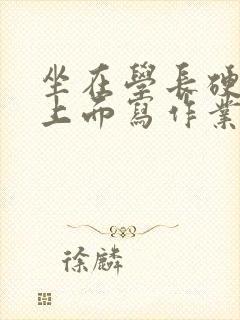 坐在學長硬
上而寫作業
徐麟